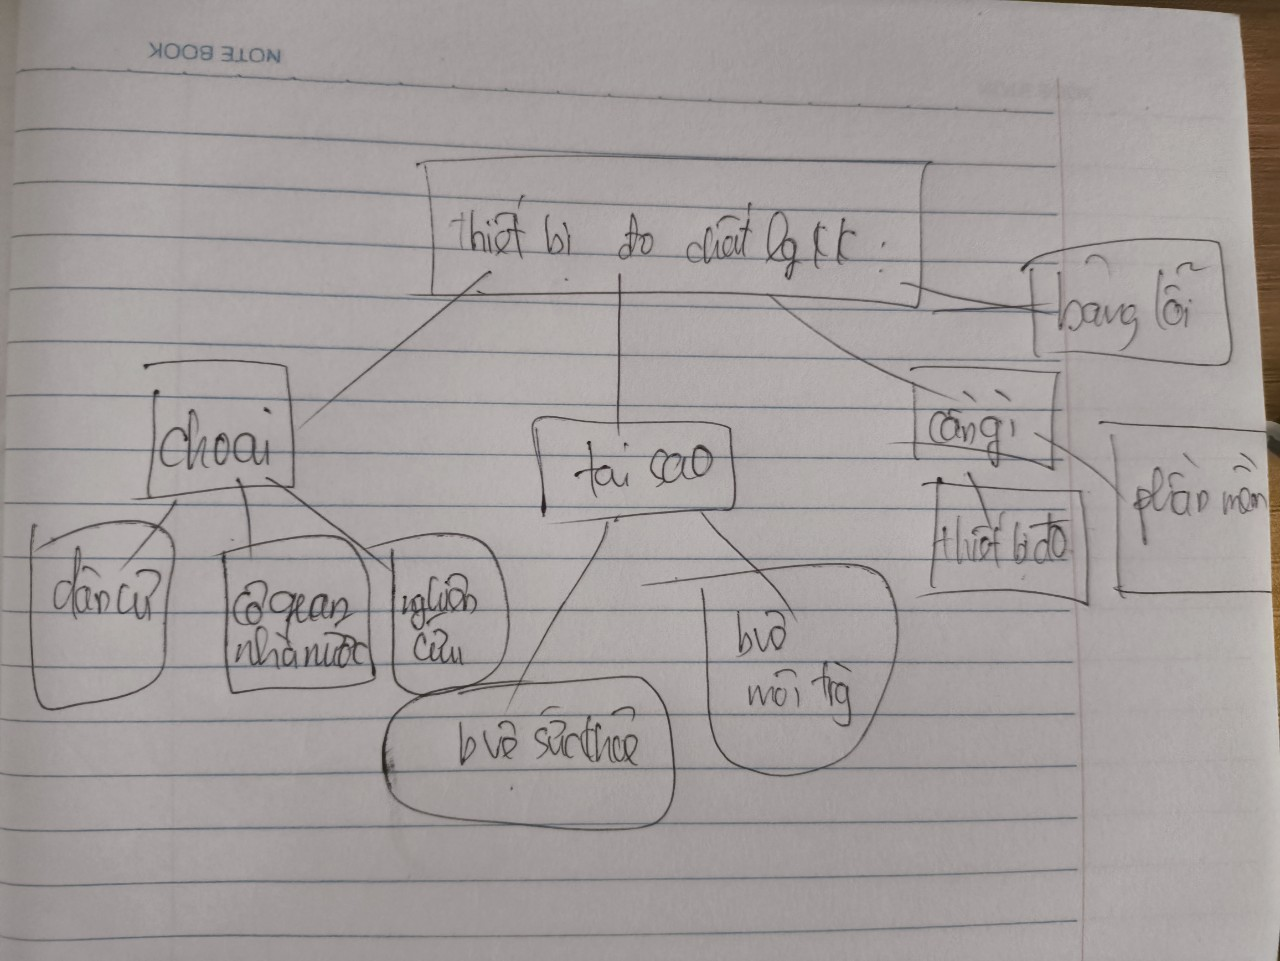 NOTE BOOK
thiết bị đo chất lg KK
bảng lỗi
cho ai
tại sao
cần gì
phần mền
thiết bị đo
dân cư
cơ quan
nhà nước
nghiên
cứu
b vệ
môi trg
b vệ sức khoẻ